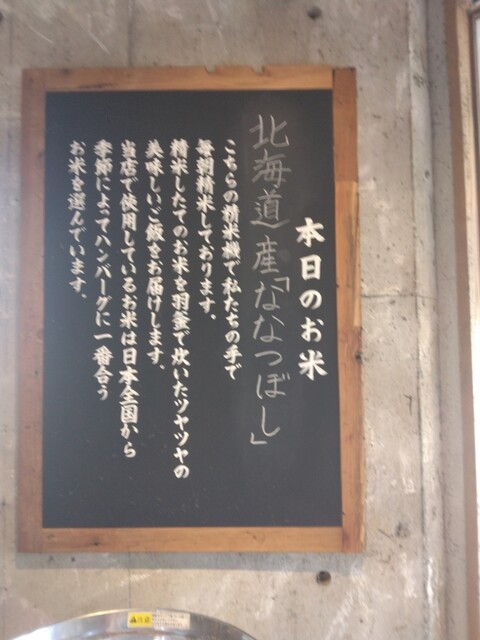 本日のお米
北海道産「ななつぼし」
こちらの精米機で私たちの手で
毎朝精米しております。
精米したてのお米を羽釜で炊いたツヤツヤの
美味しいご飯をお届けします。
当店で使用しているお米は日本全国から
季節によってハンバーグに一番合う
お米を選んでいます。
注意